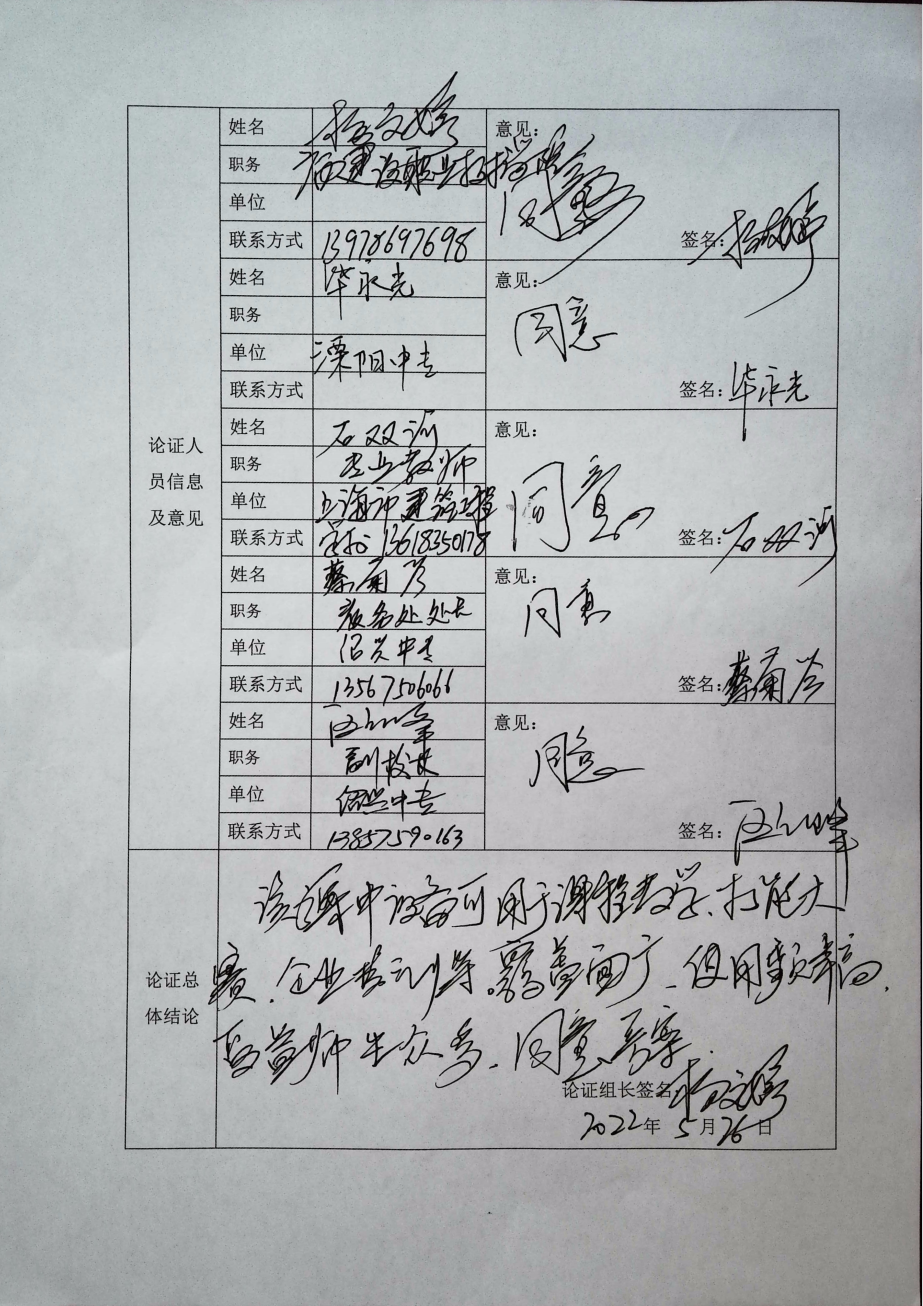 姓名 杨文婷 意见:
职务 福建
单位 同意
联系方式 13978697698 签名:杨文婷
姓名 华永光 意见:
职务 同意
单位 溧阳中专
联系方式 签名:华永光
论证人
员信息
及意见
姓名 石双 意见:
职务 专业教师
单位 上海市建筑工程 同意
联系方式 学校 13618350178 签名:石双
姓名 蔡菊 意见:
职务 教务处处长 同意
单位 绍兴中专
联系方式 13567506066 签名:蔡菊
姓名 意见:
职务 副校长 同意
单位 绍兴中专
联系方式 13857590163 签名:
论证总
体结论
该 中设备可用于课程教学、技能大
赛、企业培训等,覆盖面广、使用频率高,
受益师生众多、同意
论证组长签名 杨文婷
2022年 5月26日